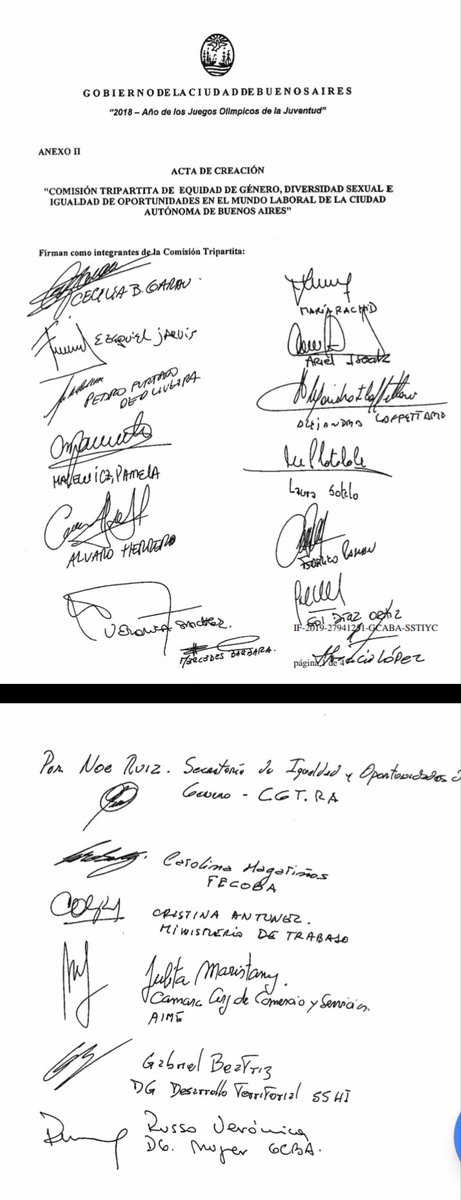 GOBIERNO DE LA CIUDAD DE BUENOS AIRES
"2018 – Año de los Juegos Olímpicos de la Juventud"
ANEXO II
ACTA DE CREACIÓN
"COMISIÓN TRIPARTITA DE EQUIDAD DE GÉNERO, DIVERSIDAD SEXUAL E
IGUALDAD DE OPORTUNIDADES EN EL MUNDO LABORAL DE LA CIUDAD
AUTÓNOMA DE BUENOS AIRES"
Firman como integrantes de la Comisión Tripartita:
CECILIA B. GARAU
MARÍA RACHID
EZEQUIEL JARVIS
ARIEL
PEDRO FURTADO
DE OLIVEIRA
ALEJANDRA
MALEWICZ, PAMELA
Laura Sotelo
ALVARO HERRERO
RAMON
VERONICA SANCHEZ.
SOL DÍAZ ORTIZ
IF-2019-27941251-GCABA-SSTIYC
MERCEDES BARBARA.
página 1 de 4
LÓPEZ
Por Noe Ruiz. Secretaría de Igualdad y Oportunidades
Género - CGT.RA
Carolina Magariños
FECOBA
CRISTINA ANTUNEZ.
MINISTERIO DE TRABAJO
Julita Maristany.
Camara Arg de Comercio y Servicios.
AIME
Gabriel Beatriz
DG Desarrollo Territorial SSHI
Russo Verónica
DG. Mujer GCBA.